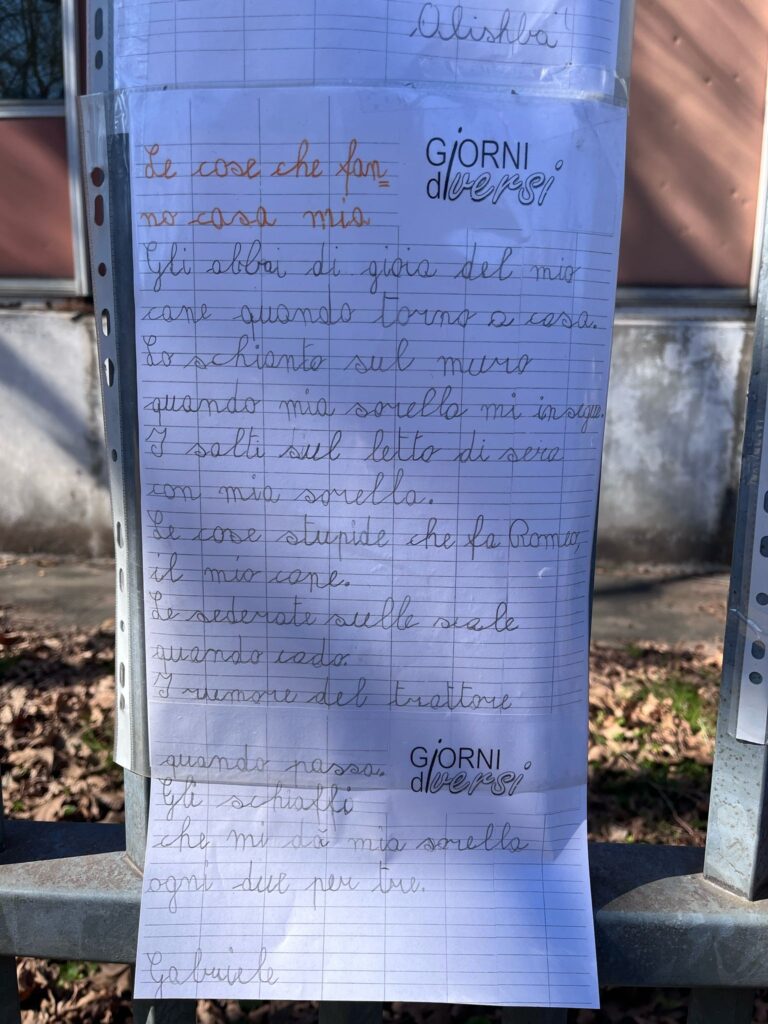 Alishba
Le cose che fan=
no casa mia
GiORNI
diversi
Gli abbai di gioia del mio
cane quando torno a casa.
Lo schianto sul muro
quando mia sorella mi insegue.
I salti sul letto di sera
con mia sorella.
Le cose stupide che fa Romeo,
il mio cane.
Le sederate sulle scale
quando cado.
I rumore del trattore
quando passa.
GiORNI
diversi
Gli schiaffi
che mi dà mia sorella
ogni due per tre.
Gabriele